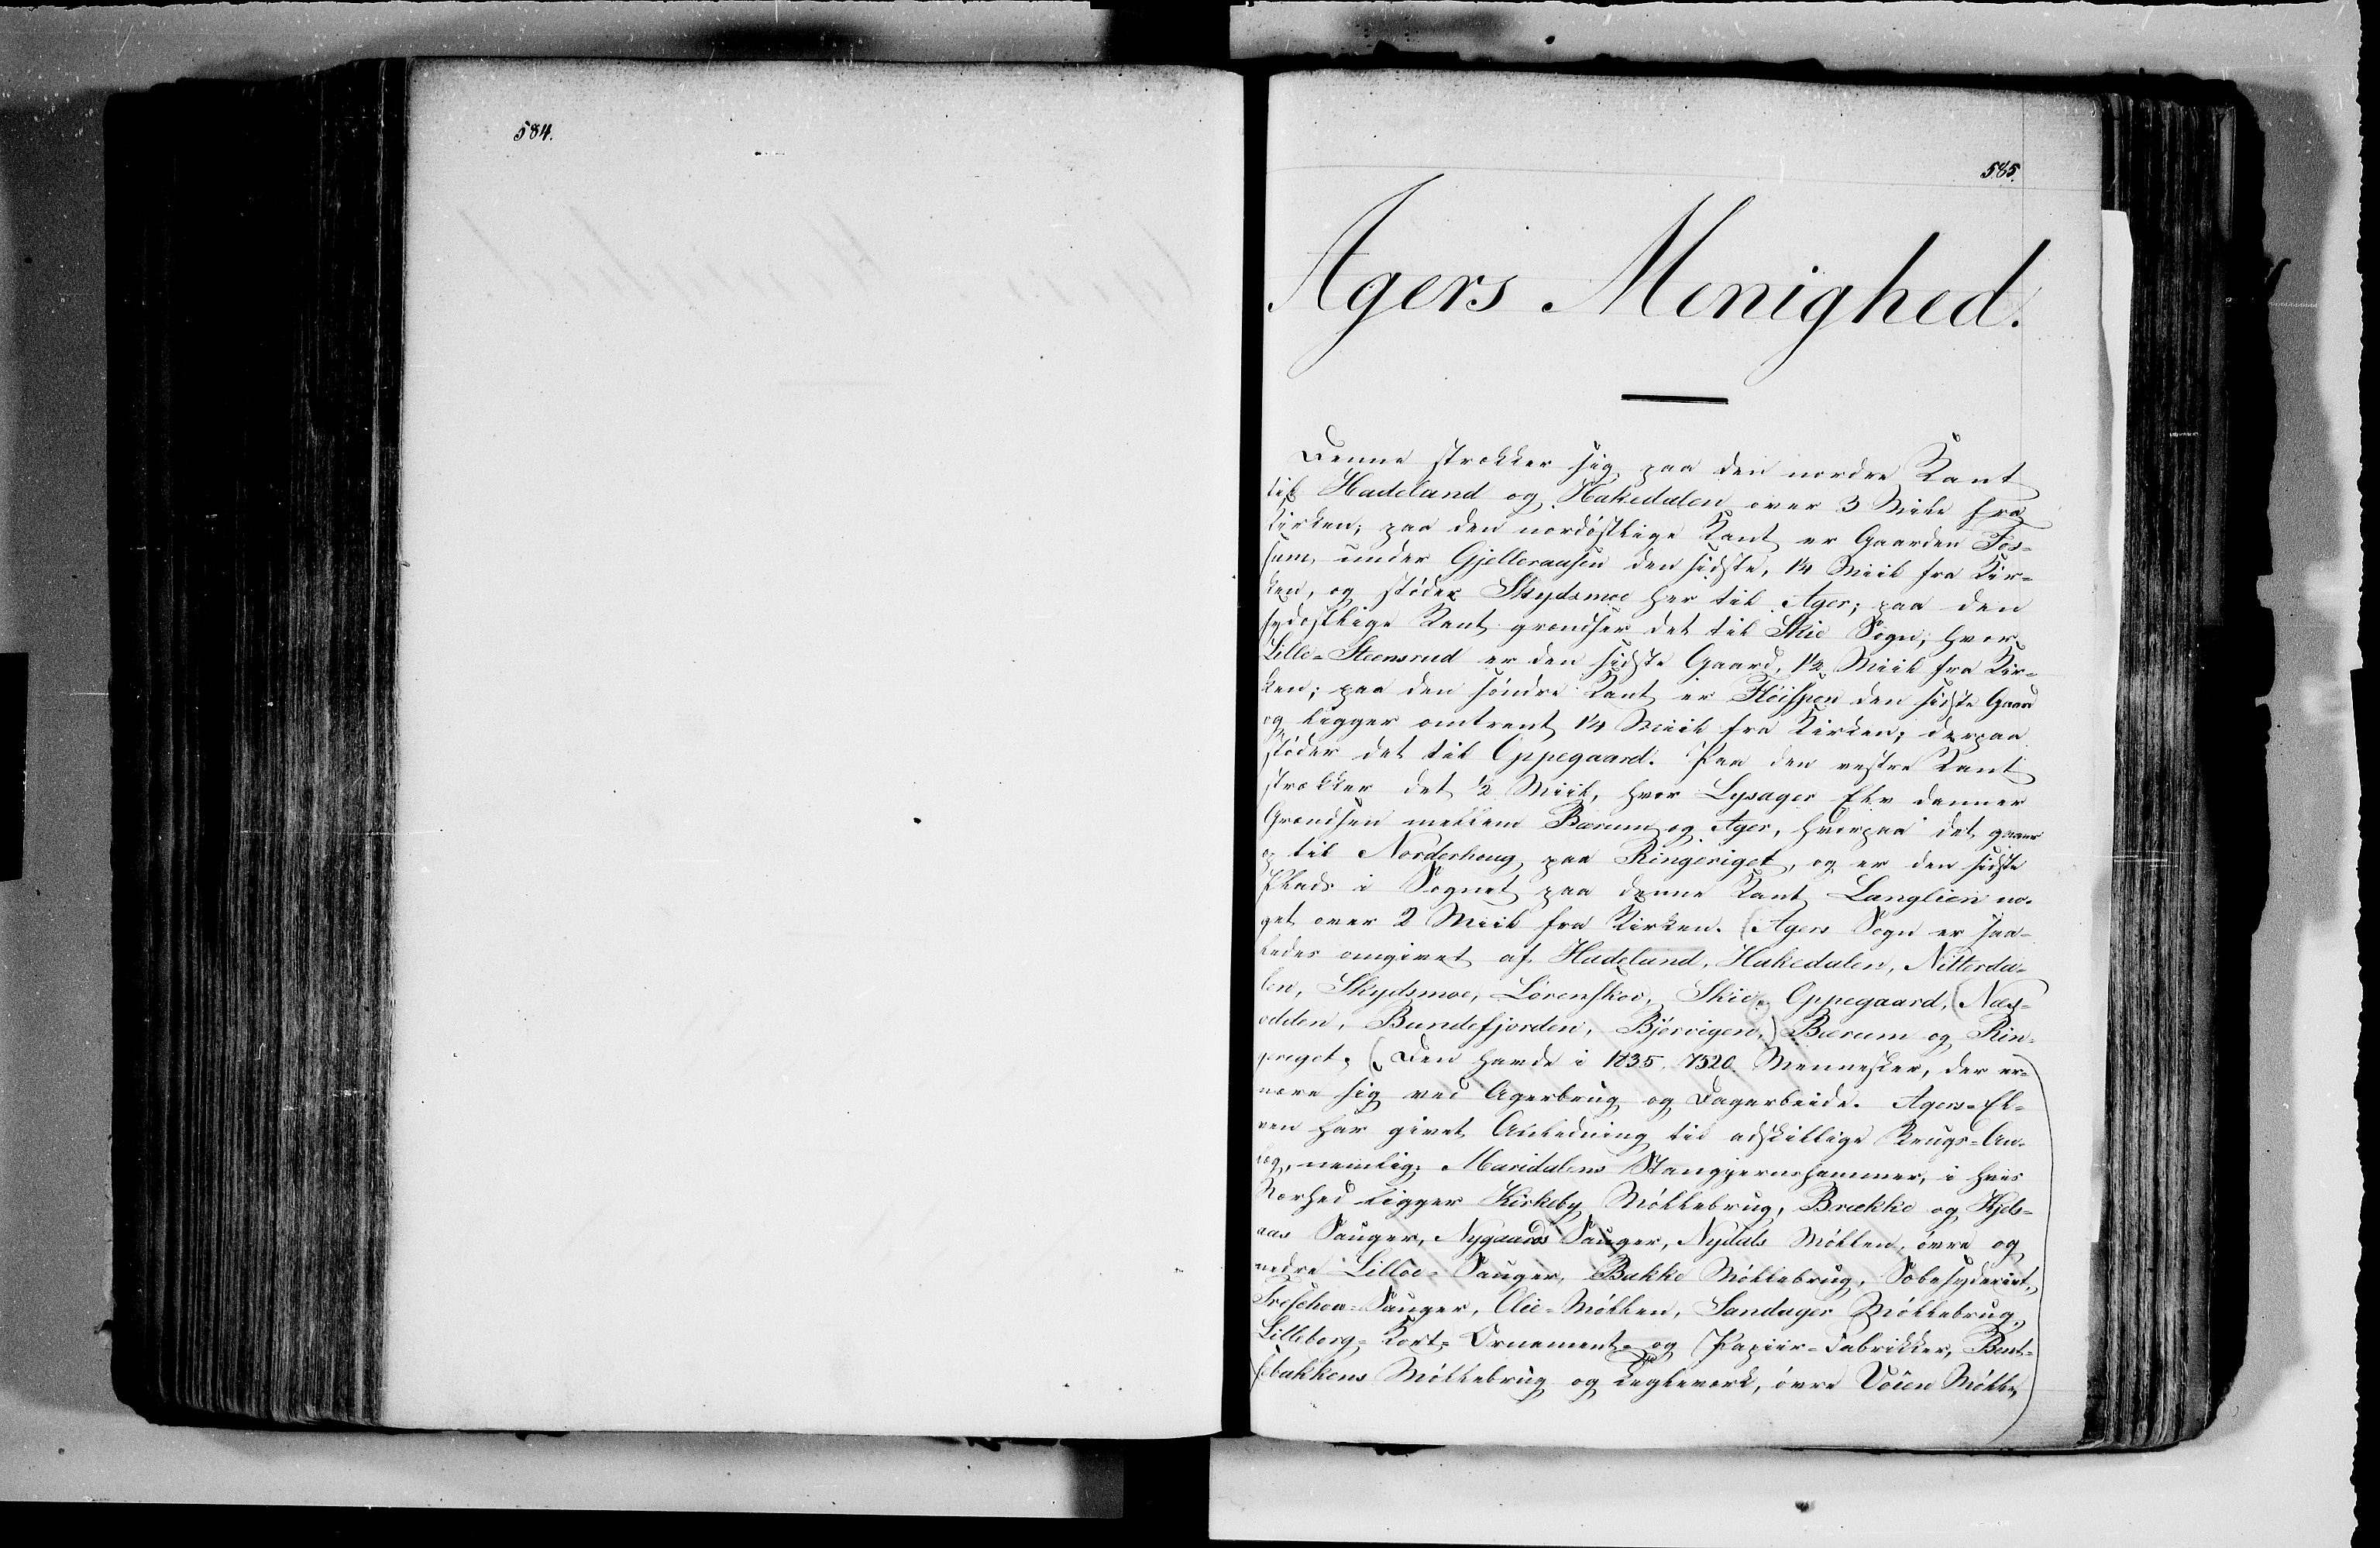 584.
585.
Agers Menighed.
Denne strækker sig paa den nordre Kant
til Hadeland og Hakedalen over 3 Mile fra
Kirken; paa den nordöstlige Kant er Gaarden Fos-
sum under Gjelleraasen den sidste, 1¼ Miil fra Kir-
ken, og stöder Skydsmoe her til Ager; paa den
sydöstlige Kant grændser det til Skie Sogn, hvor
Lille-Steensrud er den sidste Gaard, 1½ Miil fra Kir-
ken; paa den söndre Kant er Flöispon den sidste Gaard
og ligger omtrent 1¼ Miil fra Kirken; derpaa
stöder det til Oppegaard. Paa den vestre Kant
strækker det ½ Miil, hvor Lysager Elv danner
Grændsen mellem Bærum og Ager, hvorpaa det gaaer
op til Norderhoug paa Ringeriget, og er den sidste
Plads i Sognet paa denne Kant Langlien no-
get over 2 Miil fra Kirken. (Agers Sogn er saa-
ledes omgivet af Hadeland, Hakedalen, Nitterda-
len, Skydsmoe, Lörenskov, Skie, Oppegaard, (Næs-
odden, Bundefjorden, Björvigen,) Bærum og Rin-
geriget. (Den havde i 1835, 7520 Mennesker, der er-
nære sig ved Agerbrug og Dagarbeide. Agers-El-
ven har givet Anledning til adskillige Brugs-An-
læg, nemlig: Maridalens Stangjernshammer, i hvis
Nærhed ligger Kirkeby Möllebrug, Brække og Kjels-
aas Sauger, Nygaards Sauger, Nydals Möllen, övre og
nedre Lilloe-Sauger, Bakke Möllebrug, Sæbesyderiet,
Treschow-Sauger, Olie-Möllen, Sandager Möllebrug,
Lilleborg-Kort-Ornament- og Papiir-Fabrikker, Bent-
sebakkens Möllebrug og Teglværk, övre Vöien Mölle,